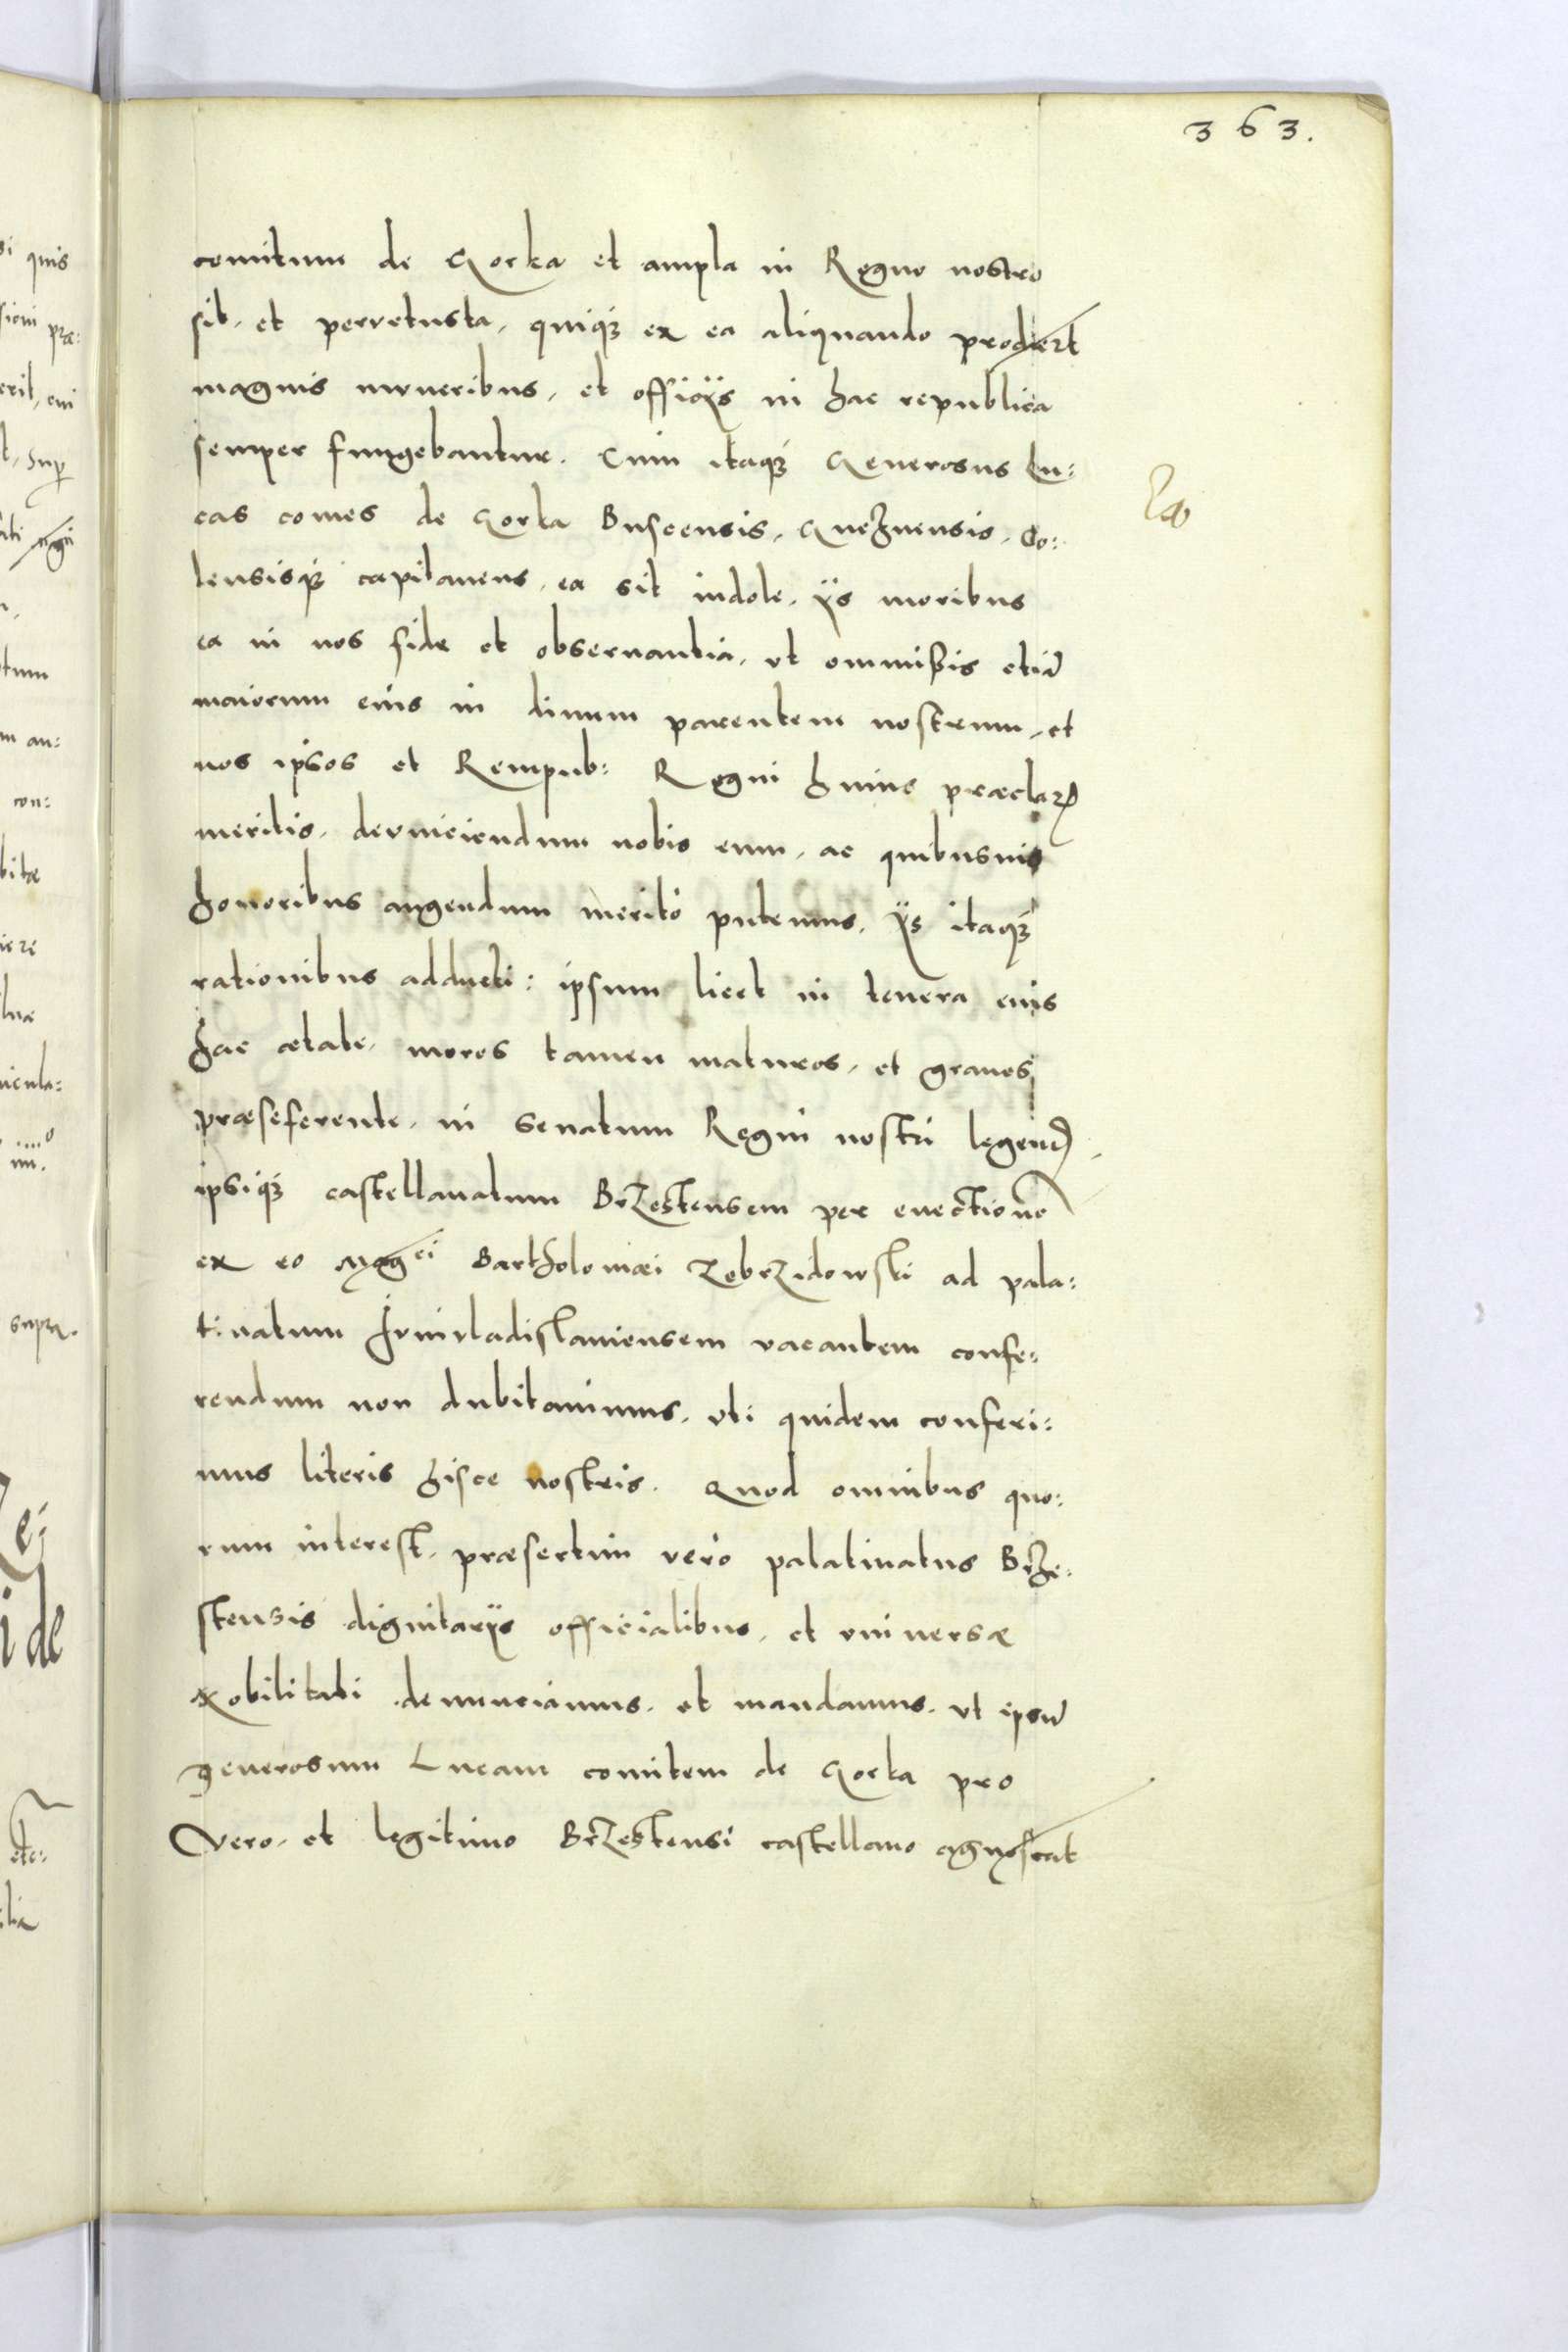 363.
comitum de Gorka et ampla in Regno nostro
sit, et pervetusta, quiq3 ex ea aliquando prodiert
magnis muneribus, et officijs in hac republica
semper fungebantur. Cum itaq3 Generosus Lu:
cas comes de Gorka Buscensis, Gneznensis, Co:
lensisq3 capitaneus, ea sit indole, ijs moribus
ea in nos fide et obseruantia, vt ommißis etiā
maiorum eius in diuum parentem nostrum, et
nos ipsos et Rempub: Regni huius præclar
meritis, deuinciendum nobis eum, ac quibusuis
honoribus augendum meritò putemus, ijs itaq3
rationibus adducti: ipsum licet in tenera eius
hac ætate, mores tamen maturos, et graues
præseferente, in senatum Regni nostri legend
ipsiq3 castellanatum Brzestensem per euectionē
ex eo Mag^ci Bartholomæi Zebrzidowski ad pala:
tinatum Iuniuladislauiensem vacantem confe:
rendum non dubitauimus, vti quidem conferi:
mus literis hisce nostris. Quod omnibus quo:
rum interest, præsertim verò palatinatus Brze:
stensis dignitarijs officialibus, et vniuersæ
Nobilitati denunciamus, et mandamus, vt ipsū
generosum Lucam comitem de Gorka pro
vero, et legitimo Brzestensi castellano agnoscat
si quis
præ:
cui
sup
tum
an:
con:
bitæ
icula:
supra.
de
etc: